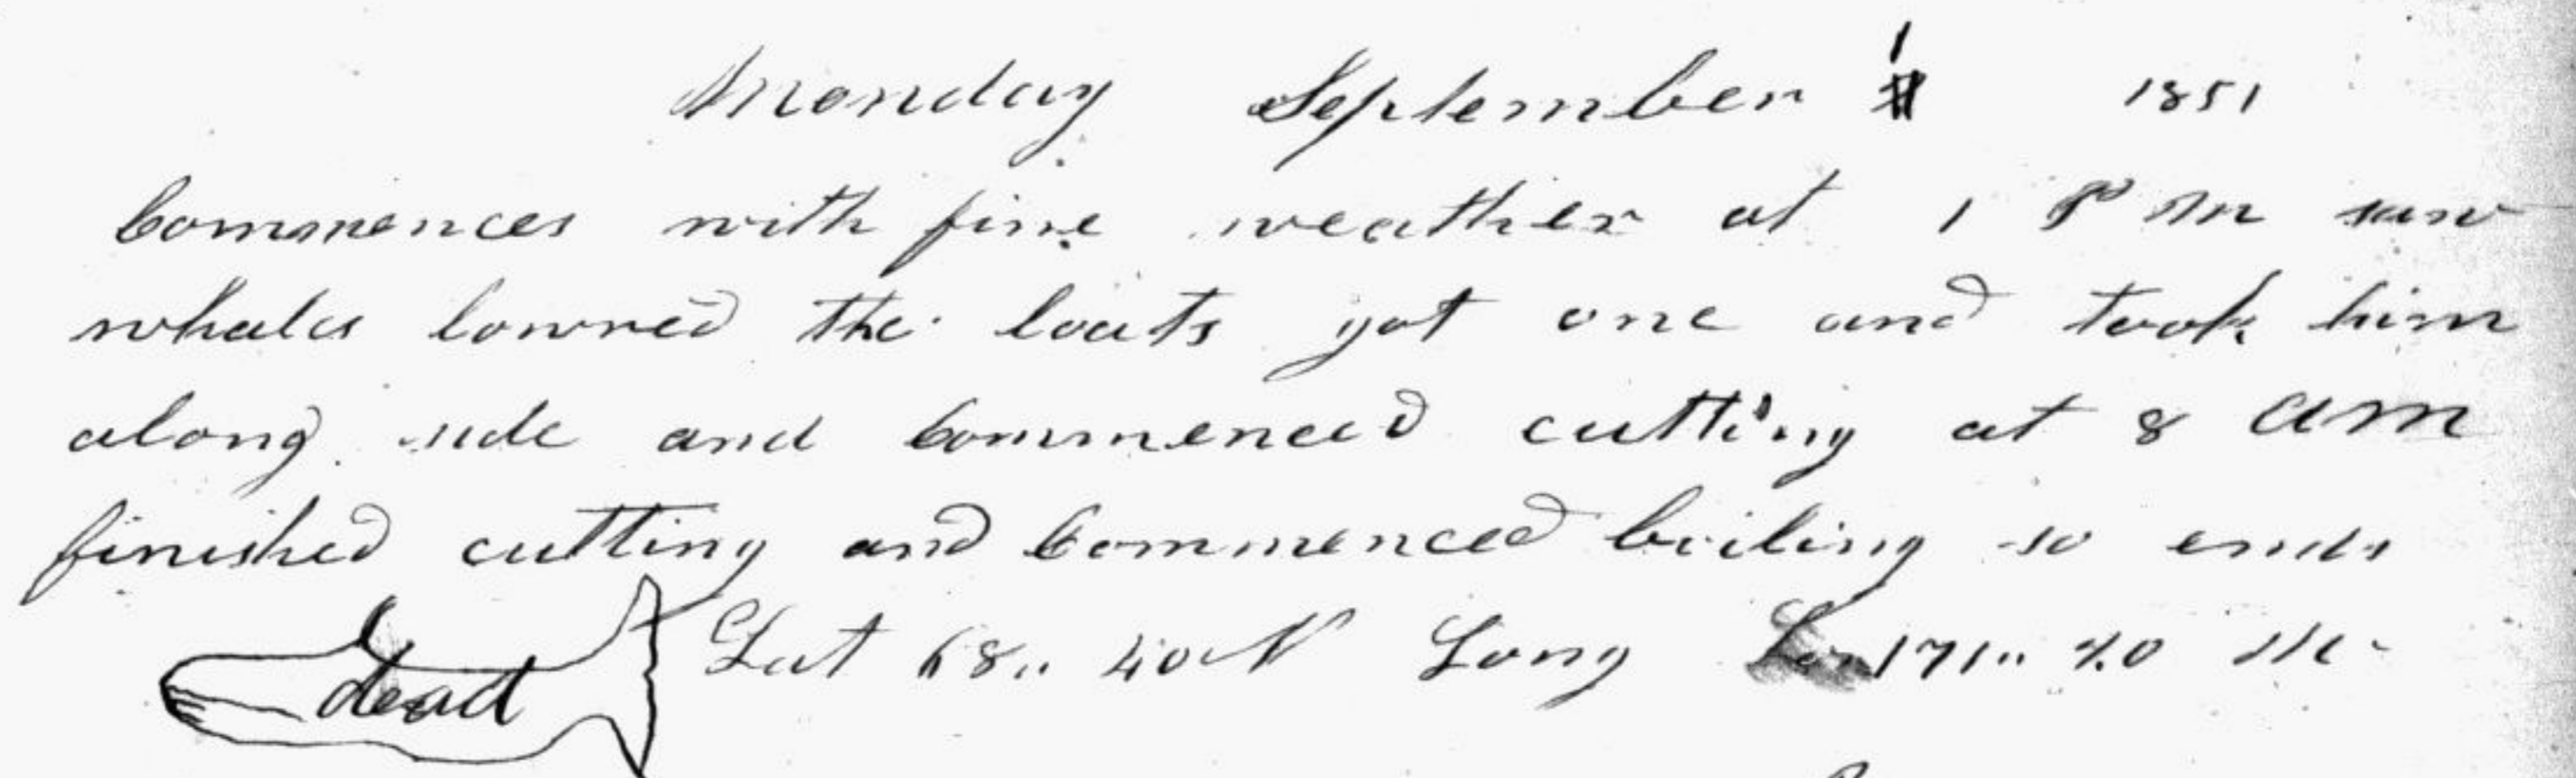 Monday September 1 1851
Commences with fine weather at 1 P M saw
whales lowred the boats got one and took him
along side and Commenced cutting at 8 am
finished cutting and Commenced boiling so ends
dead Lat 68,, 40 N Long 171,, 20